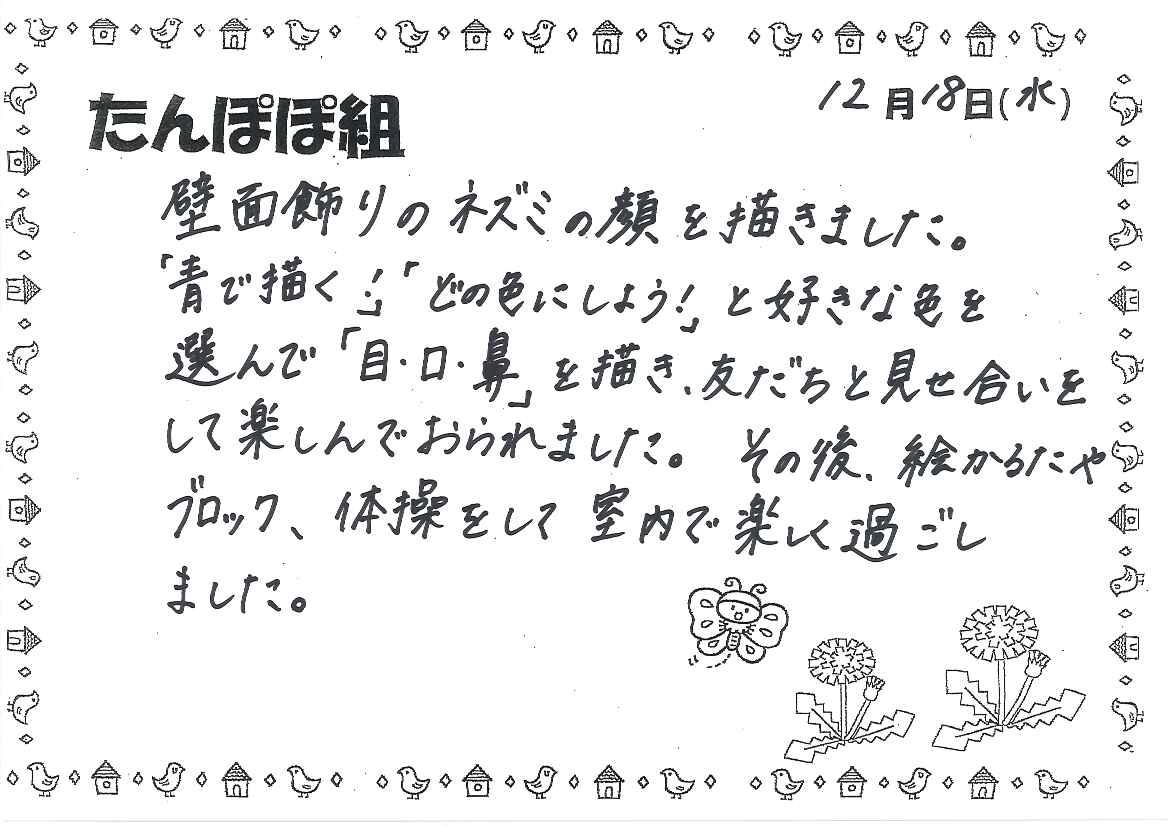 たんぽぽ組
12月18日(水)
壁面飾りのネズミの顔を描きました。
「青で描く!」「どの色にしよう!」と好きな色を
選んで「目・口・鼻」を描き、友だちと見せ合いを
して楽しんでおられました。 その後、絵かるたや
ブロック、体操をして室内で楽しく過ごし
ました。